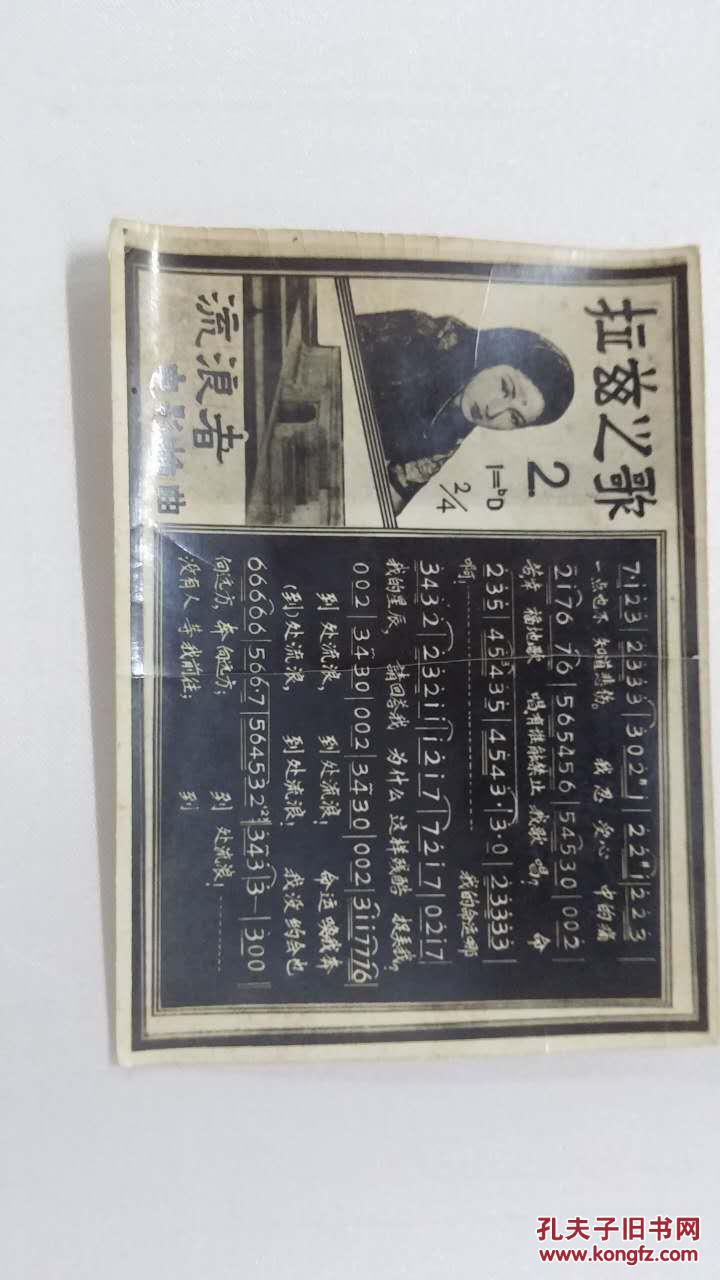 拉兹之歌
2
1=ᵇD
2/4
流浪者
电影插曲
7 1 2 3 | 2 3 3 3 | 3 0 2 1 | 2 2 1 | 2 2 3 |
一点也不 知道悲伤。 我忍 受心 中的痛
2 1 7 6 7 6 | 5 6 5 4 5 6 | 5 4 5 3 0 | 0 0 2 |
苦幸 福地歌 唱有谁能禁止 我歌 唱？ 命
2 3 5 | 4 5 4 3 5 | 4 5 4 3 · | 3 · 0 | 2 3 3 3 3 |
啊 我的命运啊
3 4 3 2 | 2 3 2 1 1 | 1 2 1 7 | 7 2 1 7 | 0 2 1 7 |
我的星辰， 請回答我 为什么 这样残酷 捉弄我？
0 0 2 | 3 4 3 0 | 0 0 2 | 3 4 3 0 | 0 0 2 | 3 1 1 7 7 7 6 |
到 处流浪， 到 处流浪！ 命运唤我奔
(到)处流浪， 到处流浪！ 我没约会也
6 6 6 6 6 | 5 6 6 · 7 | 5 6 4 5 3 2 | 3 4 3 | 3 — | 3 0 0 |
向远方，奔向远方； 到 处流浪！
没有人 等我前往； 到
孔夫子旧书网
www.kongfz.com